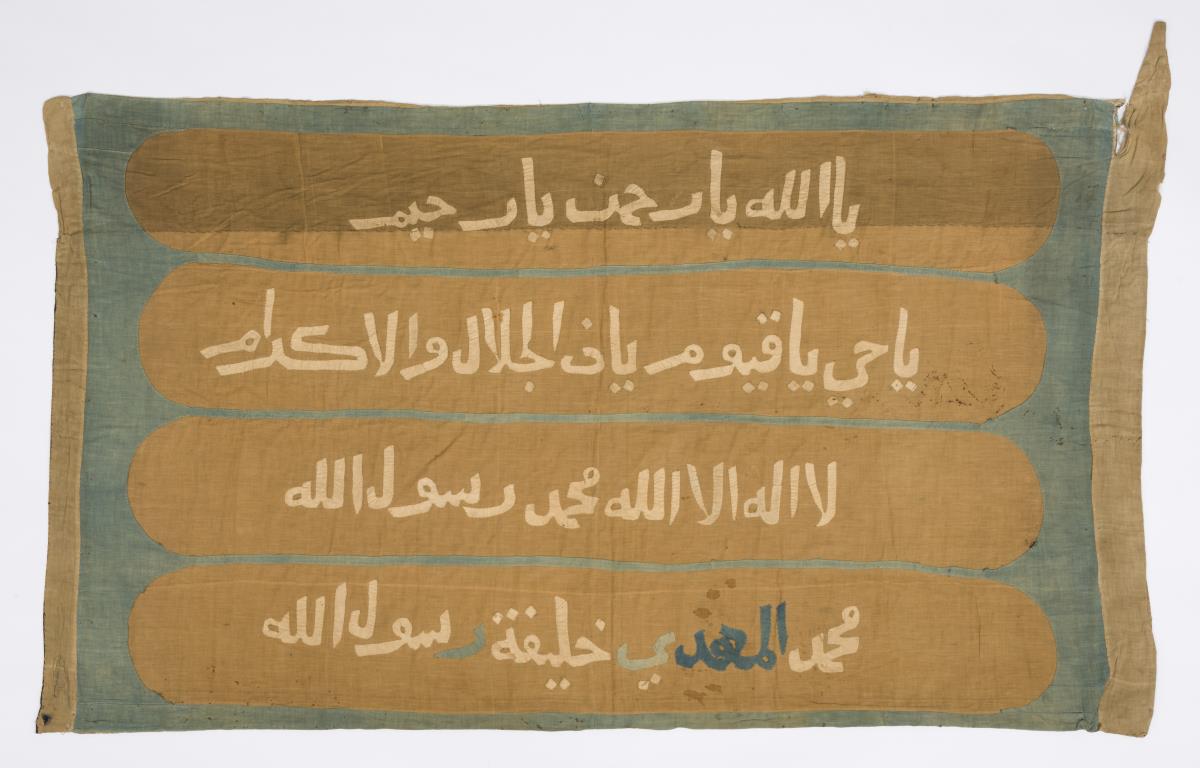 ياالله يارحمن يارحيم
ياحي ياقيوم ياذ الجلال والاكرام
لااله الاالله محمد رسول الله
محمد المهدي خليفة رسول الله